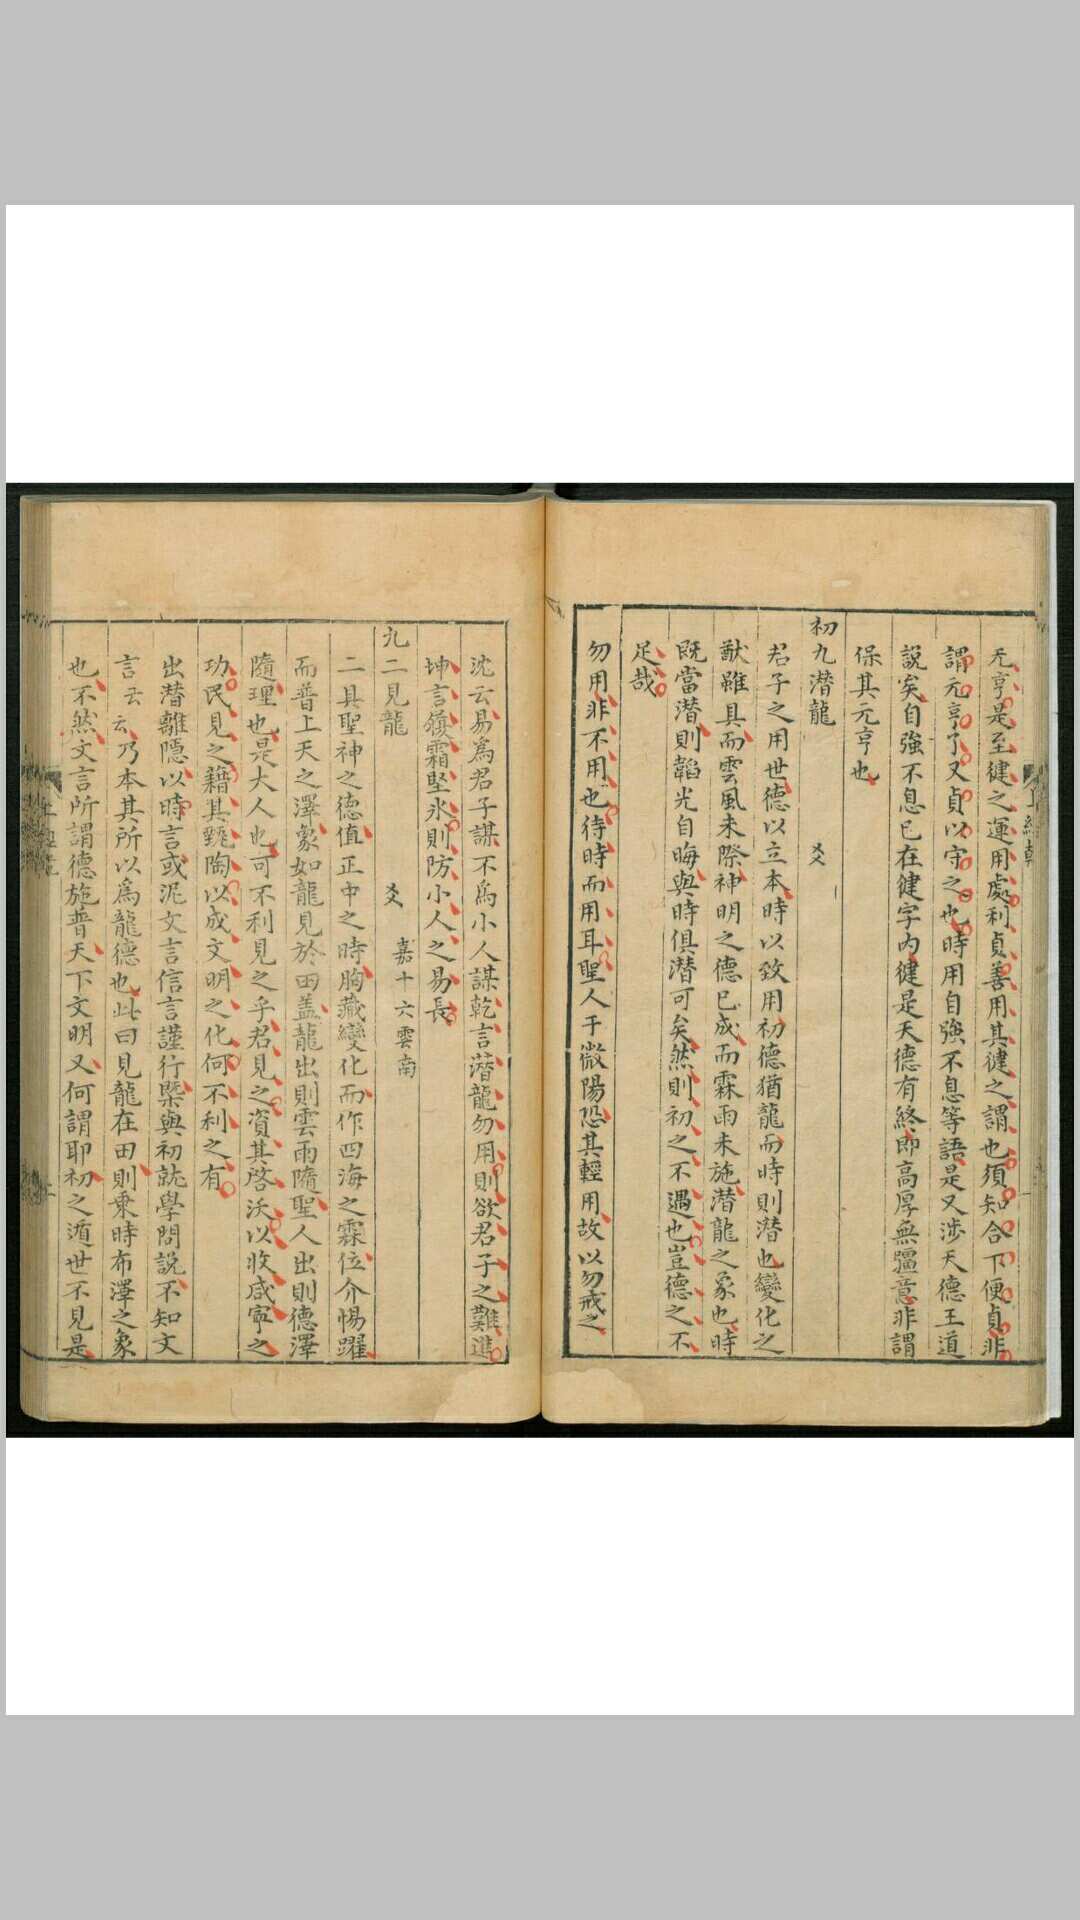 元亨是至健之運用處利貞善用其健之謂也須知合下便貞非
謂元亨了又貞以守之也時用自強不息等語是又涉天德王道
說矣自強不息已在健字內健是天德有終即高厚無疆意非謂
保其元亨也
初九潛龍 爻
君子之用世德以立本時以致用初德猶龍而時則潛也變化之
猷雖具而雲風未際神明之德已成而霖雨未施潛龍之象也時
既當潛則韜光自晦與時俱潛可矣然則初之不遇也豈德之不
足哉
勿用非不用也待時而用耳聖人于微陽恐其輕用故以勿戒之
沈云易為君子謀不為小人謀乾言潛龍勿用則欲君子之難進
坤言履霜堅氷則防小人之易長
九二見龍 爻 嘉十六雲南
二具聖神之德值正中之時胸藏變化而作四海之霖位介惕躍
而普上天之澤象如龍見於田盖龍出則雲雨隨聖人出則德澤
隨理也是大人也可不利見之乎君見之資其啓沃以收咸寧之
功民見之藉其甄陶以成文明之化何不利之有
出潛離隱以時言或泥文言信言謹行槩與初就學問說不知文
言云云乃本其所以為龍德也此曰見龍在田則乗時布澤之象
也不然文言所謂德施普天下文明又何謂耶初之遁世不見是